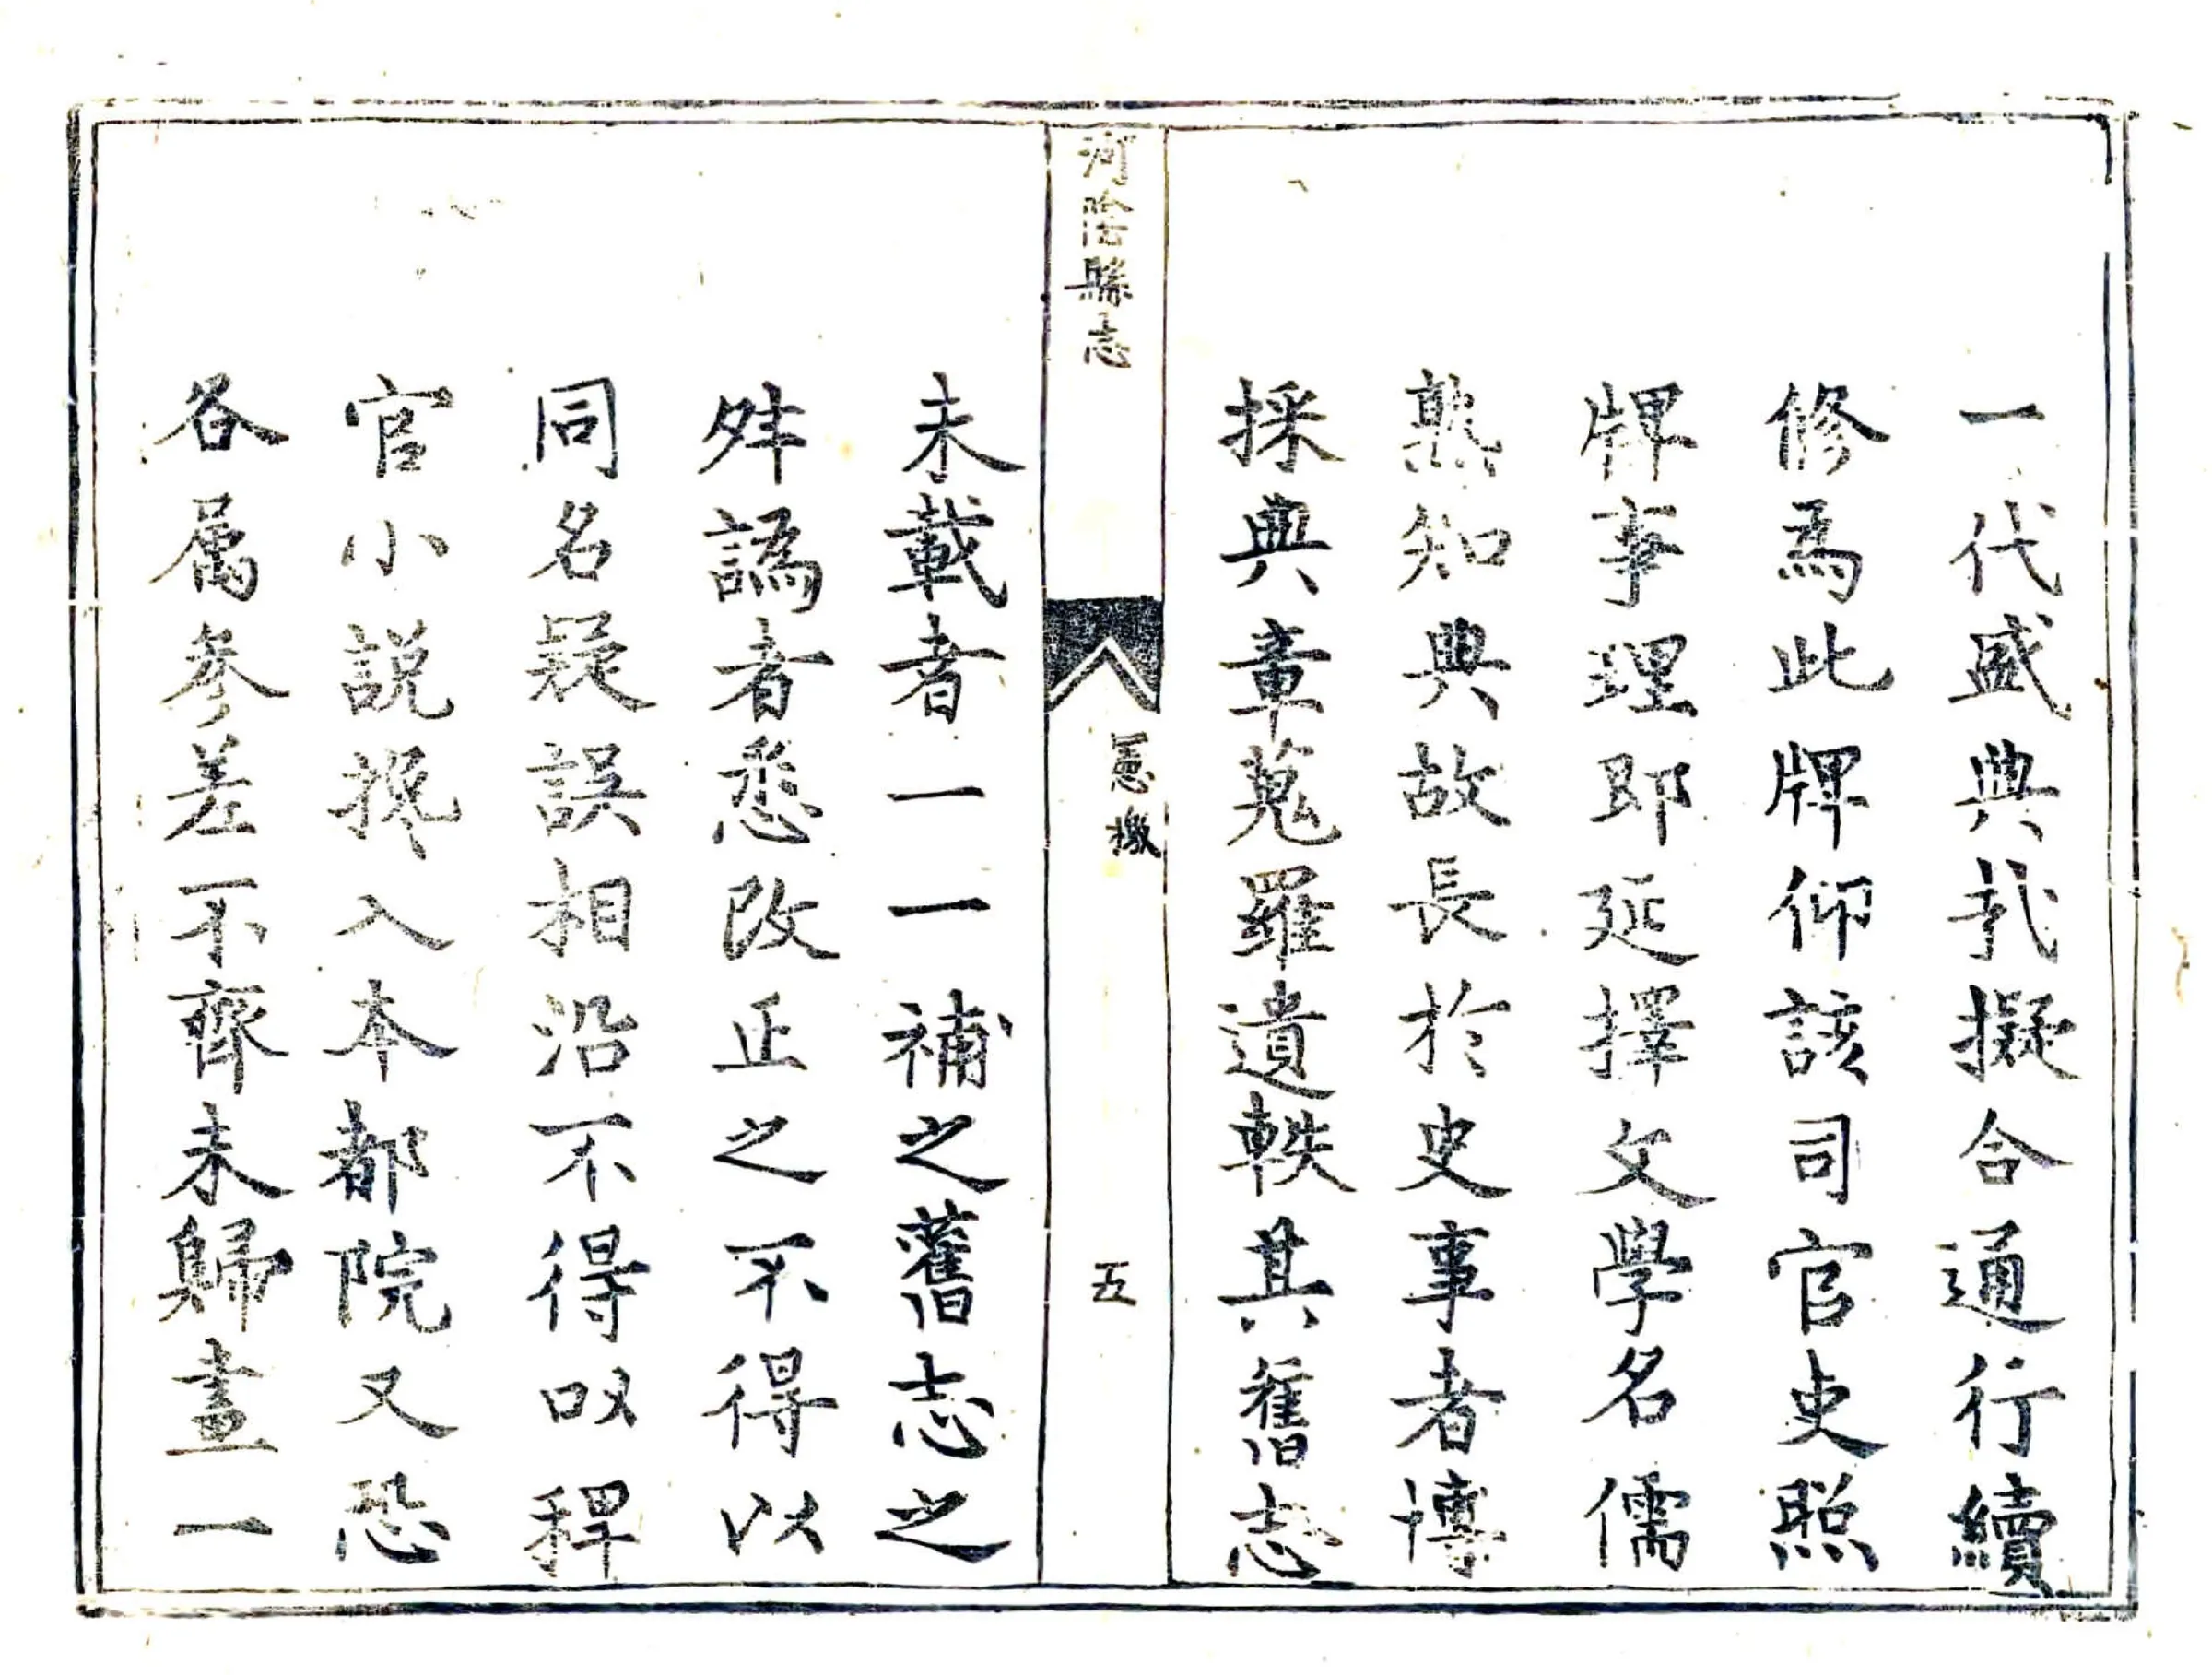 一代盛典哉擬合通行續
修爲此牌仰該司官吏照
牌事理即延擇文學名儒
熟知典故長於史事者博
採典章蒐羅遺軼其舊志
河陰縣志
憲檄
五
未載者一一補之舊志之
舛譌者悉改正之不得以
同名疑誤相沿不得以稗
官小説攙入本都院又恐
各属參差不齊未歸畫一